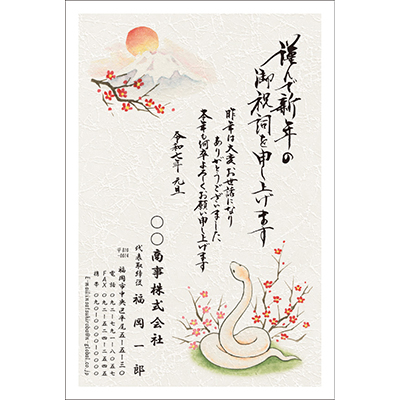 謹んで新年の
御祝詞を申し上げます
昨年は大変お世話になり
ありがとうございました
本年も何卒よろしくお願い申し上げます
令和七年 元旦
〇〇商事株式会社
代表取締役 福岡一郎
〒810
-0014
福岡市中央区平尾五-五-三〇
電話 〇九二-七九一-八〇五七
FAX 〇九二-五二四-二五四五
携帯 〇九〇-〇〇〇〇-〇〇〇〇